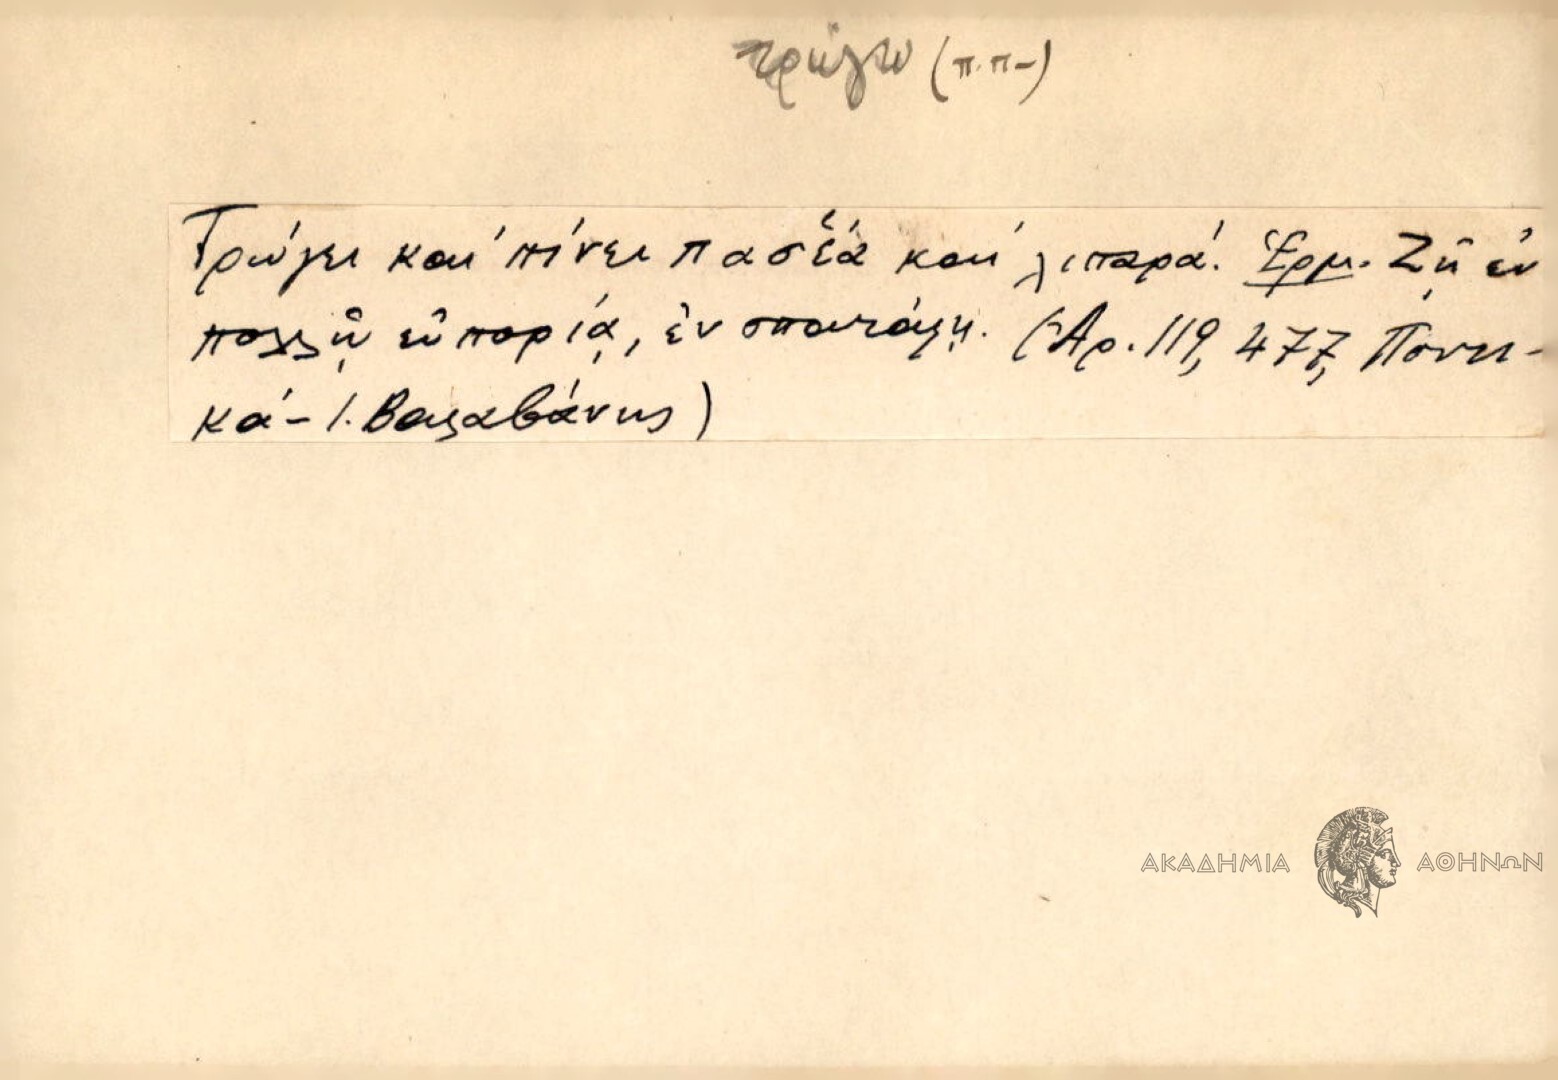 τρώγω (π.π-)
Τρώγει καὶ πίνει πασέα καὶ λιπαρά. Ἑρμ. Ζῇ ἐν
πολλῇ εὐπορίᾳ, ἐν σπατάλῃ. (Ἀρ. 119, 477, Ποντι-
κά - Ι. Βαλαβάνης)
ΑΚΑΔΗΜΙΑ ΑΘΗΝΩΝ